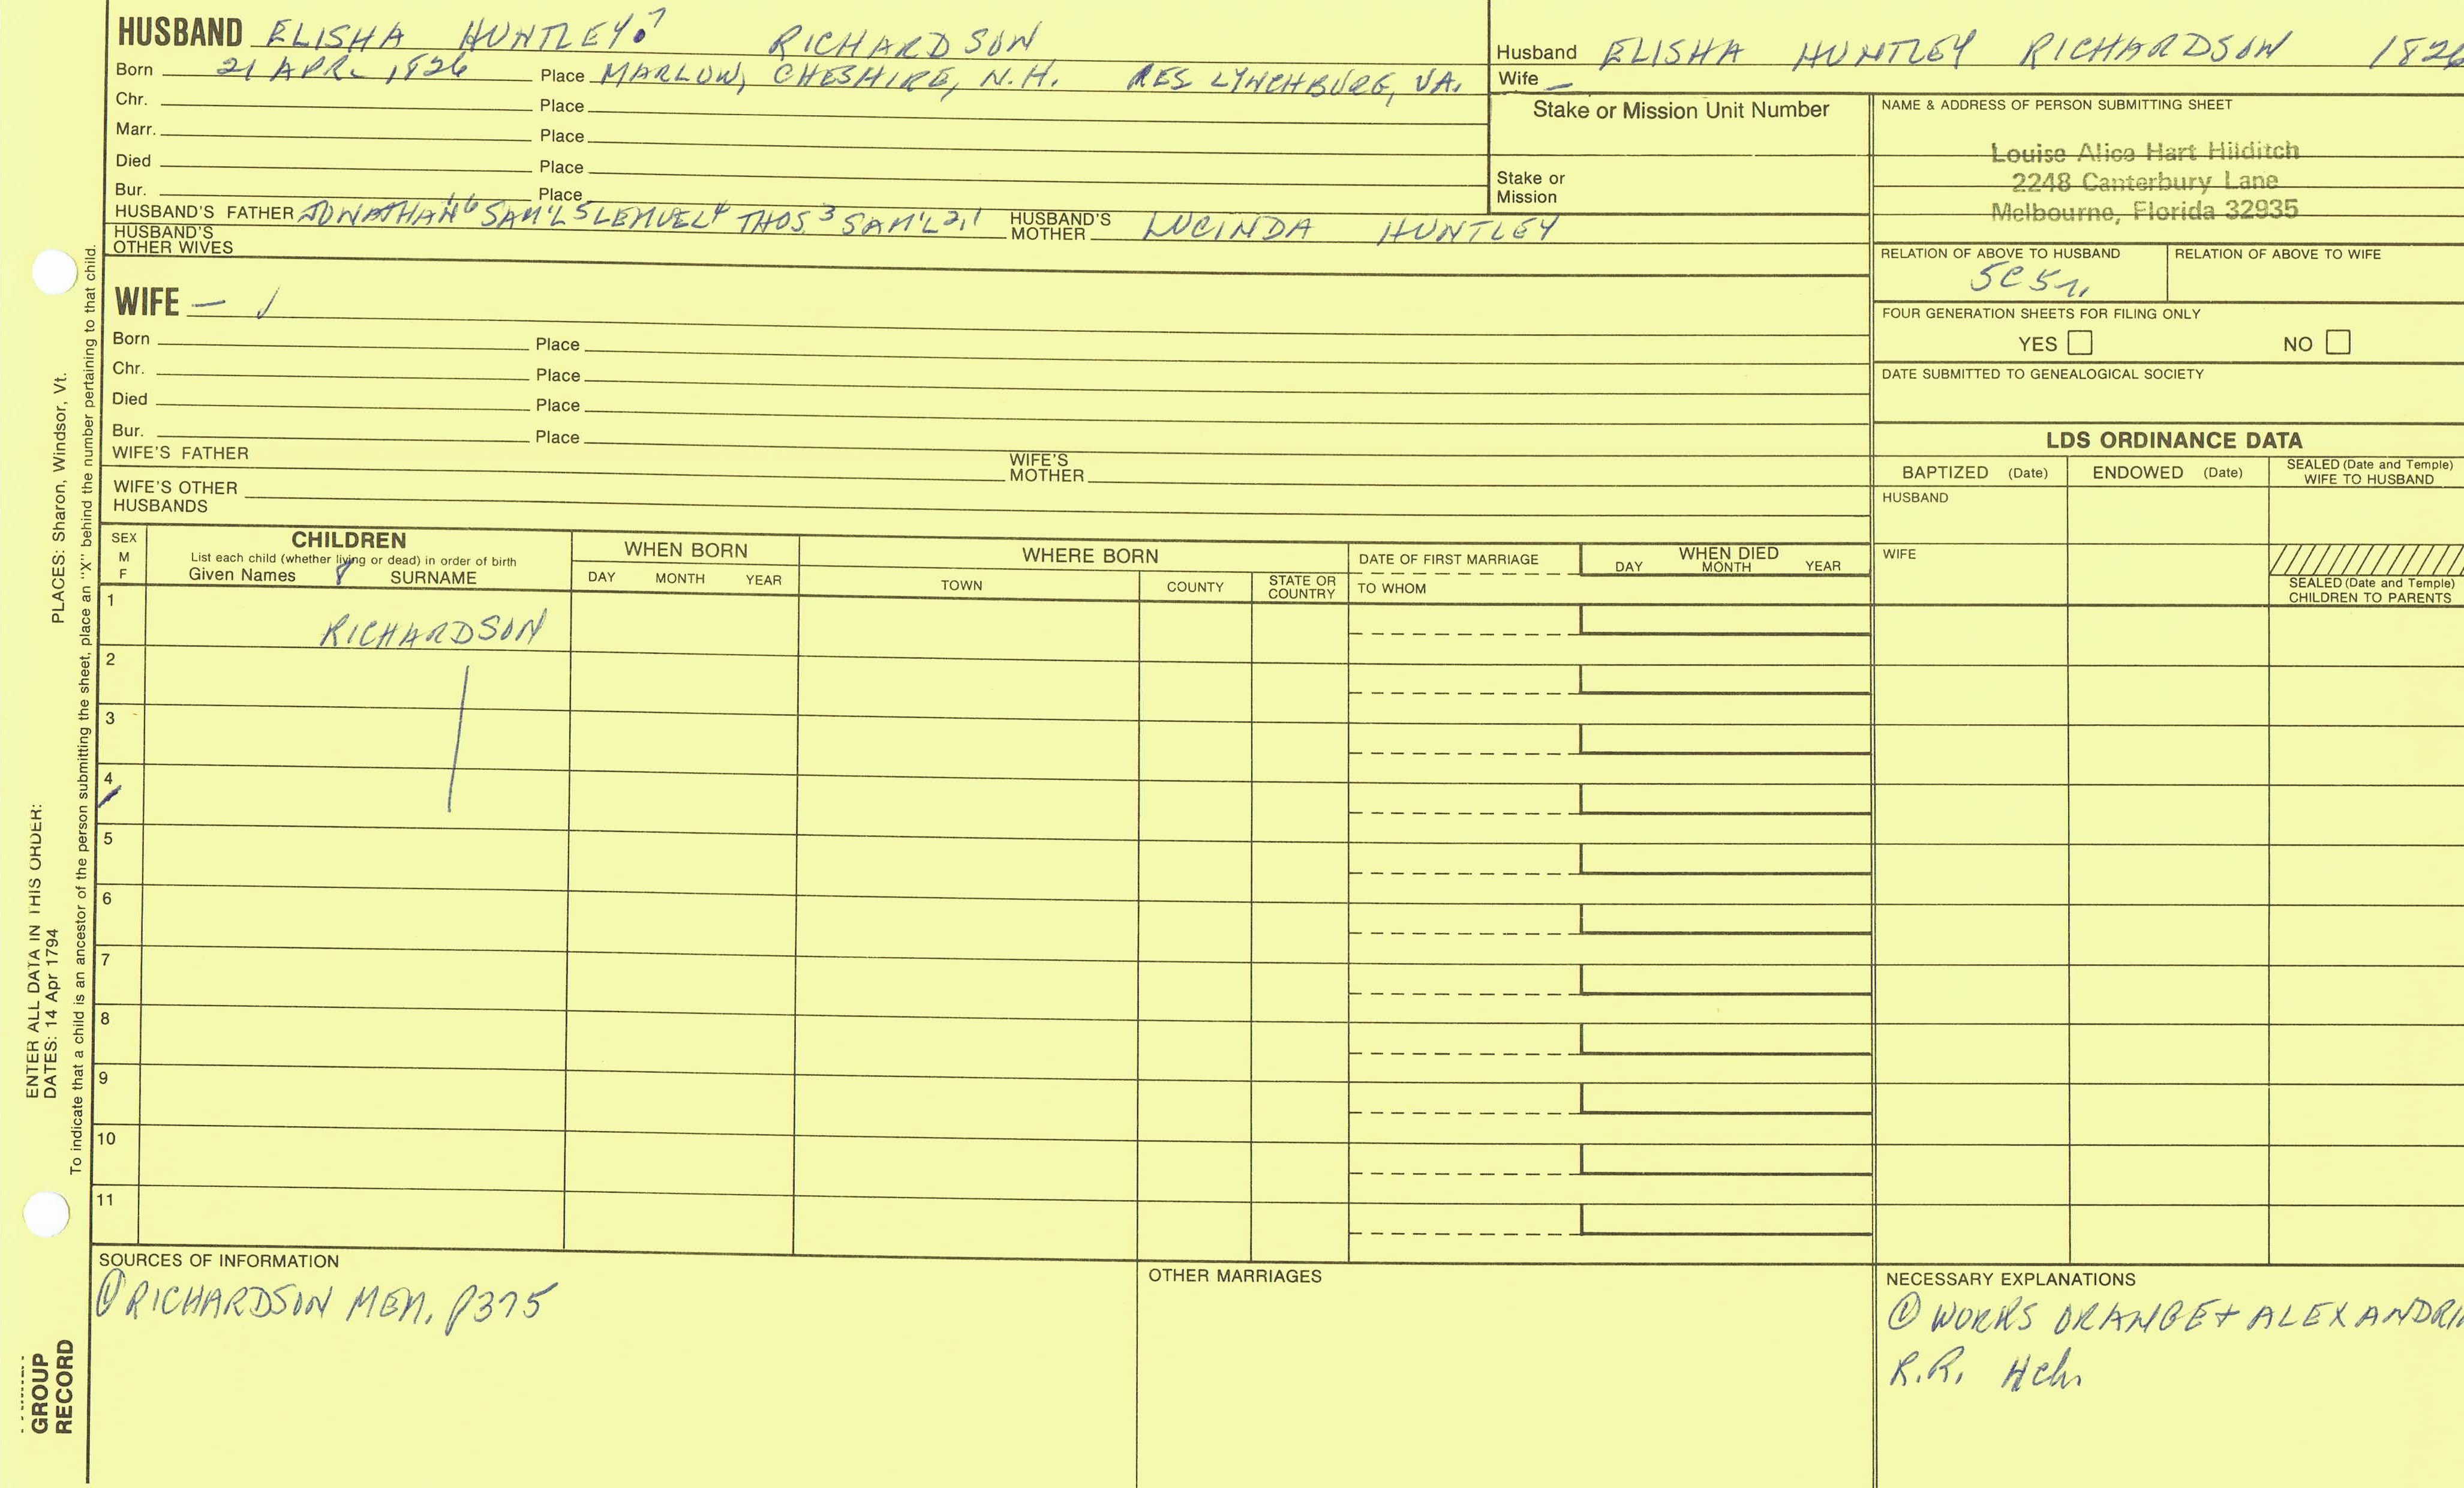 HUSBAND ELISHA HUNTLEY 7 RICHARDSON
Born 21 APR 1826 Place MARLOW, CHESHIRE, N.H. RES LYNCHBURG, VA.
Chr. Place
Marr. Place
Died Place
Bur. Place
HUSBAND'S FATHER JONATHAN 6 SAM'L 5 LEMUEL 4 THOS. 3 SAM'L 2,1 HUSBAND'S MOTHER LUCINDA HUNTLEY
HUSBAND'S OTHER WIVES
Husband ELISHA HUNTLEY RICHARDSON 1826
Wife —
Stake or Mission Unit Number
Stake or
Mission
NAME & ADDRESS OF PERSON SUBMITTING SHEET
Louise Alice Hart Hilditch
2248 Canterbury Lane
Melbourne, Florida 32935
RELATION OF ABOVE TO HUSBAND RELATION OF ABOVE TO WIFE
5C5
FOUR GENERATION SHEETS FOR FILING ONLY
YES NO
DATE SUBMITTED TO GENEALOGICAL SOCIETY
WIFE —
Born Place
Chr. Place
Died Place
Bur. Place
WIFE'S FATHER WIFE'S MOTHER
WIFE'S OTHER
HUSBANDS
LDS ORDINANCE DATA
BAPTIZED (Date) ENDOWED (Date) SEALED (Date and Temple) WIFE TO HUSBAND
HUSBAND
WIFE
SEALED (Date and Temple)
CHILDREN TO PARENTS
SEX M F
CHILDREN
List each child (whether living or dead) in order of birth
Given Names SURNAME
WHEN BORN
DAY MONTH YEAR
WHERE BORN
TOWN COUNTY STATE OR COUNTRY
DATE OF FIRST MARRIAGE
TO WHOM
WHEN DIED
DAY MONTH YEAR
1 RICHARDSON
2
3
4
5
6
7
8
9
10
11
SOURCES OF INFORMATION
① RICHARDSON MEM. P375
OTHER MARRIAGES
NECESSARY EXPLANATIONS
① WORKS ORANGE + ALEXANDRI
R.R.
ENTER ALL DATA IN THIS ORDER:
DATES: 14 Apr 1794
PLACES: Sharon, Windsor, Vt.
To indicate that a child is an ancestor of the person submitting the sheet, place an "X" behind the number pertaining to that child.
GROUP
RECORD